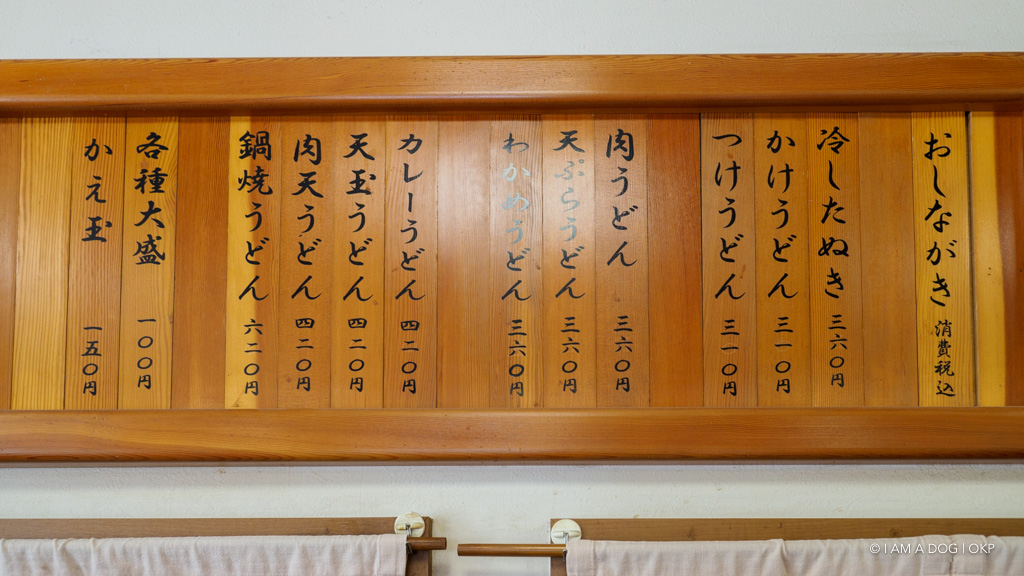 おしながき 消費税込
冷したぬき 三六〇円
かけうどん 三一〇円
つけうどん 三一〇円
肉うどん 三六〇円
天ぷらうどん 三六〇円
わかめうどん 三六〇円
カレーうどん 四二〇円
天玉うどん 四二〇円
肉天うどん 四二〇円
鍋焼うどん 六二〇円
各種大盛 一〇〇円
かえ玉 一五〇円
© I AM A DOG | OKP